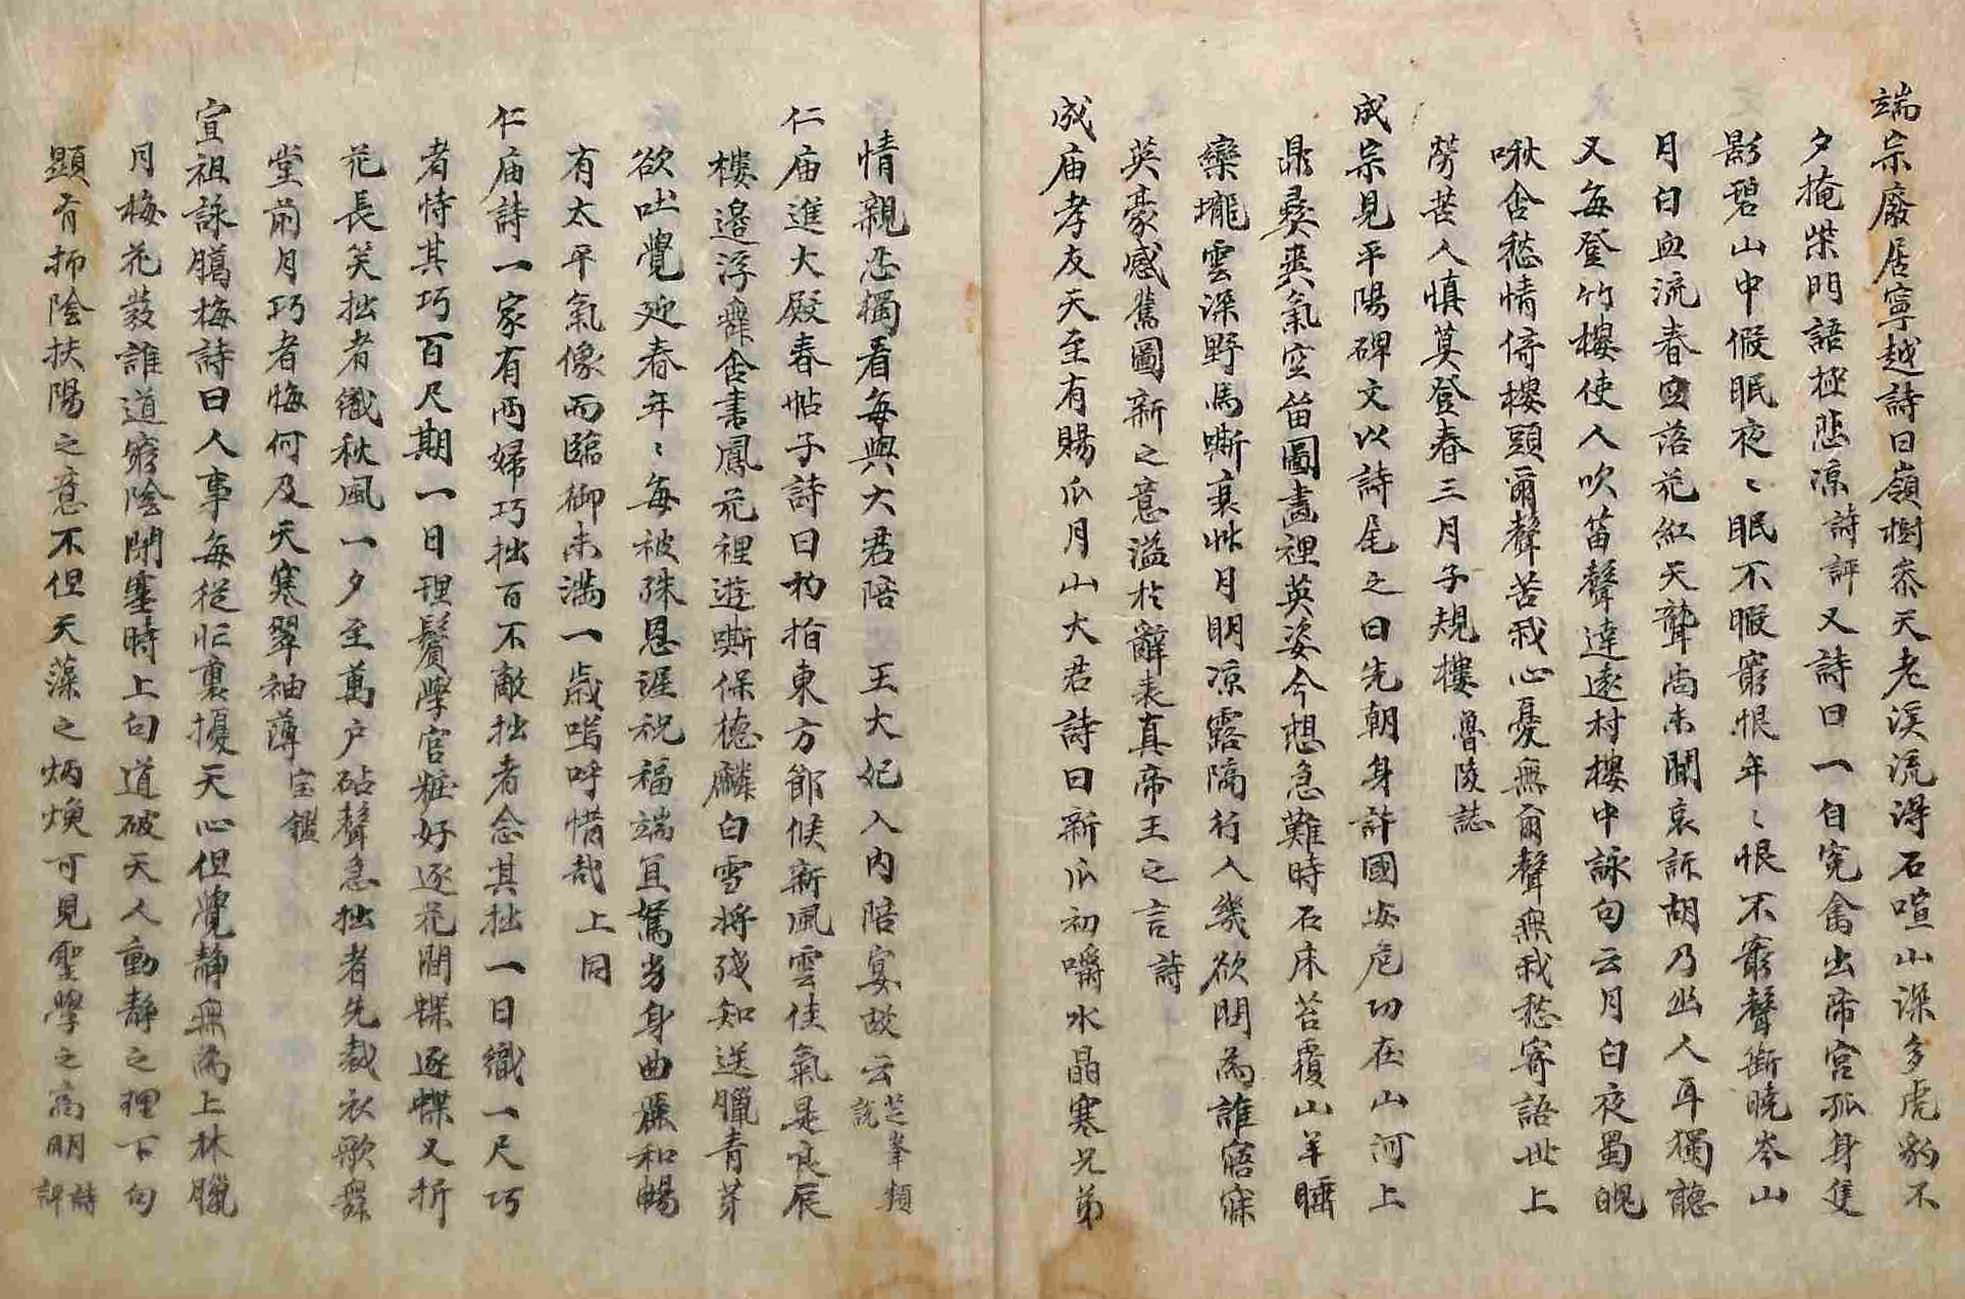 端宗廢居寧越詩曰嶺樹叅天老溪流得石喧山深多虎豹不
夕掩柴門語極悲涼詩評又詩曰一自寃禽出帝宮孤身隻
影碧山中假眠夜〻眠不暇窮恨年〻恨不窮聲斷曉岑山
月白血流春空落花紅天聾尚未聞哀訴胡乃幽人耳獨聽
又每登竹樓使人吹笛聲達遠村樓中詠句云月白夜蜀魄
啾含愁情倚樓頭爾聲苦我心憂無爾聲無我愁寄語世上
勞苦人慎莫登春三月子規樓魯陵誌
成宗見平陽碑文以詩尾之曰先朝身許國安危功在山河上
鼎彛爽氣空留圖畵裡英姿今想急難時石床苔覆山羊睡
欒壠雲深野馬嘶衰草月明凉露隔行人幾欲問為誰寤寐
英豪感舊圖新之意溢於辭表真帝王之言詩
成庙孝友天至有賜瓜月山大君詩曰新瓜初嚼水晶寒兄弟
情親忍獨看每與大君陪 王大妃入內陪宴故云芝峯類說
仁庙進大殿春帖子詩曰杓指東方節候新風雲佳氣是良辰
樓邉浮舞含書鳳苑裡遊嘶保德麟白雪將殘知送臘青芽
欲吐覺迎春年〻每被殊恩渥祝福端宜駕岁身曲藤和暢
有太平氣像而臨御未滿一歲嗚呼惜哉上同
仁庙詩一家有两婦巧拙百不敵拙者念其拙一日織一尺巧
者恃其巧百尺期一日理鬢學官粧好逐花間蝶逐蝶又折
花長笑拙者織秋風一夕至萬户砧聲急拙者先裁衣歌舞
堂前月巧者悔何及天寒翠袖薄宝鑑
宣祖詠臈梅詩曰人事每從忙裏擾天心但覺静無為上林臘
月梅花蕟誰道窮陰閉塞時上句道破天人動靜之理下句
顕有抑陰扶陽之意不但天藻之炳煥可見聖學之高明詩評